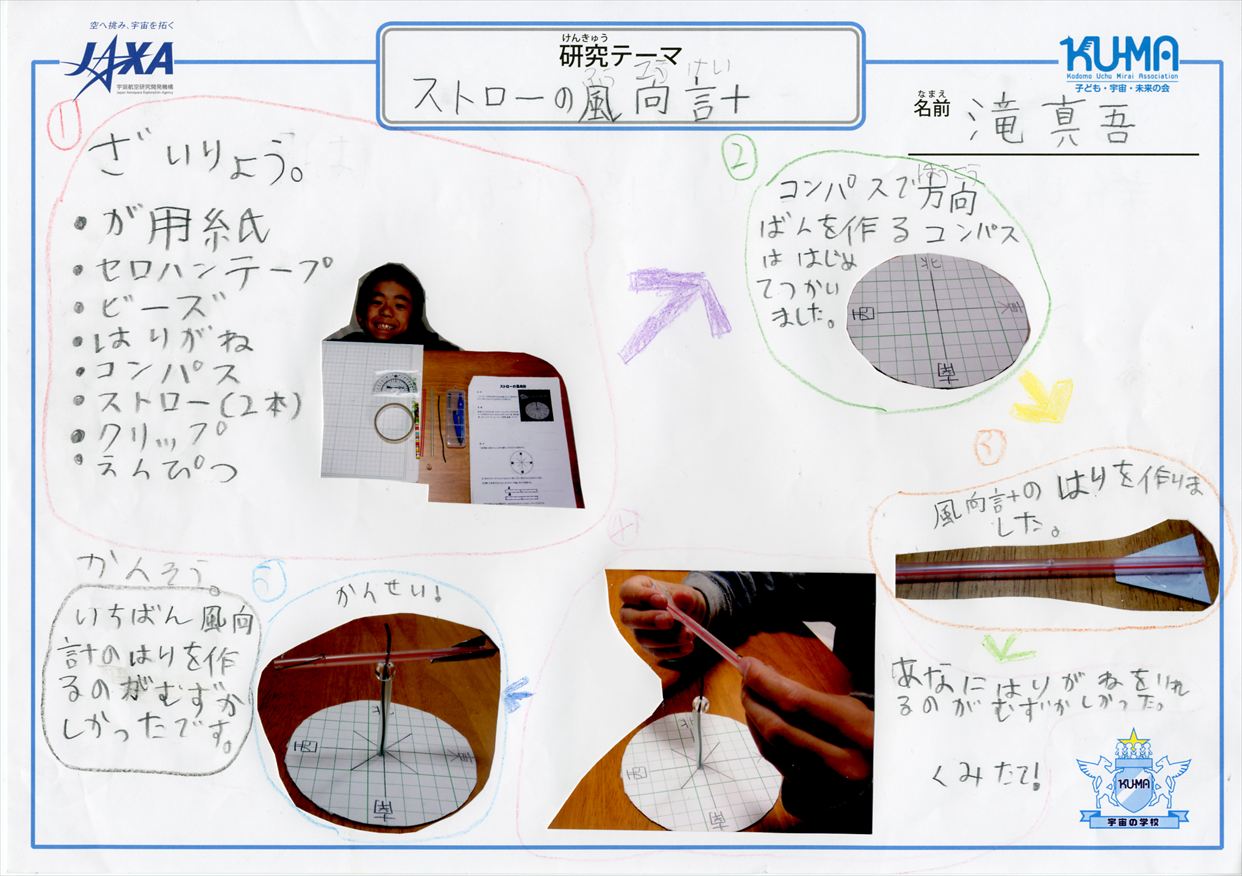 空へ挑み、宇宙を拓く
JAXA
宇宙航空研究開発機構
Japan Aerospace Exploration Agency
けんきゅう
研究テーマ
ふう こう けい
ストローの風向計
KU-MA
Kodomo Uchu Mirai Association
子ども・宇宙・未来の会
なまえ
名前 滝真吾
①
ざいりょう。
・が用紙
・セロハンテープ
・ビーズ
・はりがね
・コンパス
・ストロー(2本)
・クリップ
・えんぴつ
ストローの風向計
②
ほうこう
コンパスで方向
ばんを作るコンパス
は はじめ
てつかい
ました。
北
西
東
南
③
風向計のはりを作りま
した。
④
あなにはりがねをいれ
るのがむずかしかった。
くみたて!
北
西
南
⑤
かんせい!
北
西
東
南
かんそう。
いちばん風向
計のはりを作
るのがむずか
しかったです。
KU-MA
宇宙の学校